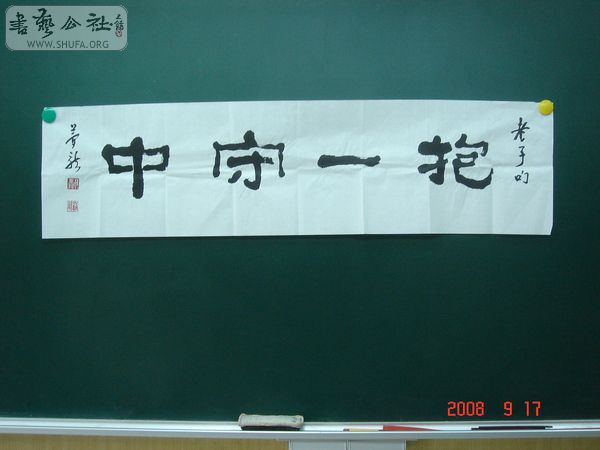 書藝公社
WWW.SHUFA.ORG
老子句
抱一守中
2008 9 17